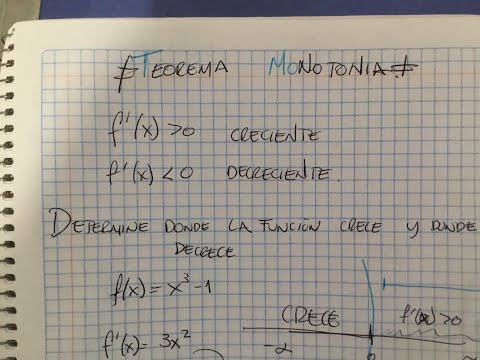 TEOREMA MONOTONIA
f'(x) >0 CRECIENTE
f'(x) <0 DECRECIENTE.
DETERMINE DONDE LA FUNCIÓN CRECE Y DONDE
DECRECE
f(x) = x³-1
CRECE f'(x) >0
f'(x) = 3x²
-2 0